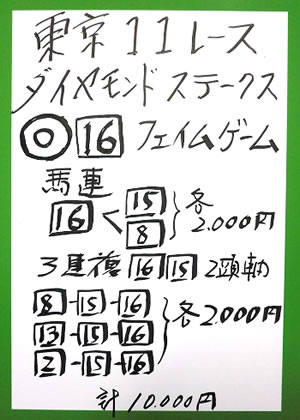 東京11レース
ダイヤモンドステークス
◎16 フェイムゲーム
馬連
16 < 15 8 } 各2.000円
3連複 16 15 2頭軸
8-15-16
13-15-16 } 各2.000円
2-15-16
計10.000円